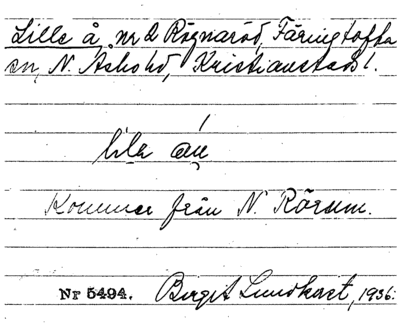 Lille å, nr 2 Rögnaröd, Färingtofta
sn, N. Åsbo hd, Kristianstads l.
lilɐ án
Kommer från N. Rörum.
Nr 5494. Birgit Lundkvist, 1936.